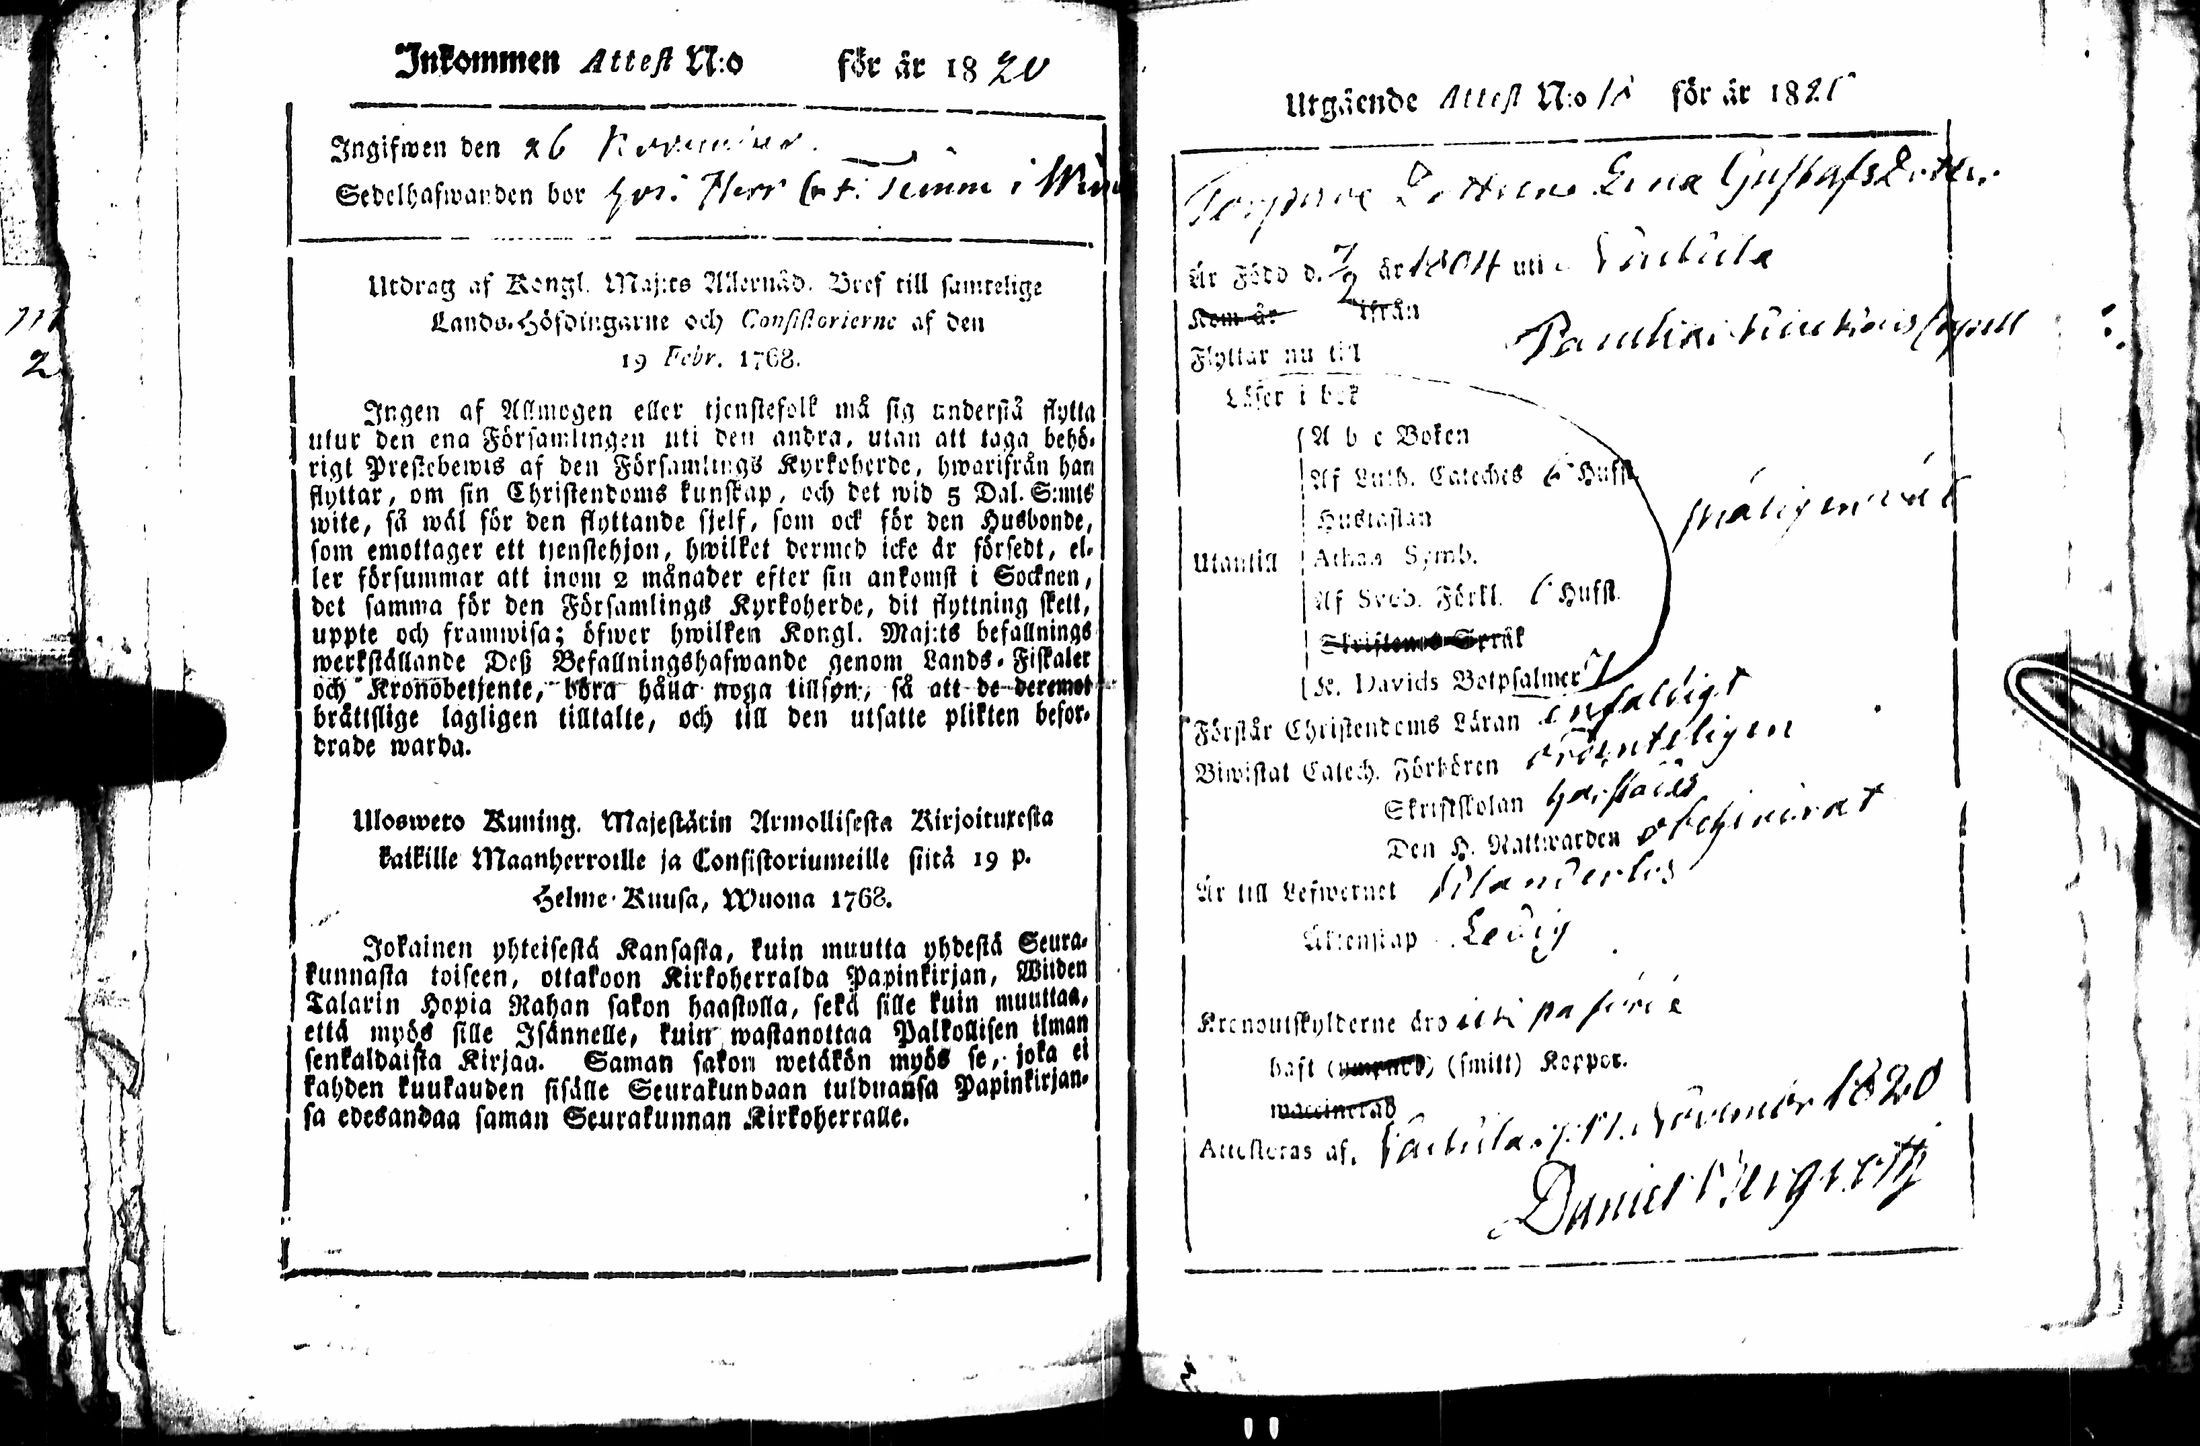 Inkommen Attest N:o för år 1820
Ingifwen den 26 November.
Sedelhafwanden bor hos Herr Temm i
Utdrag af Kongl. Maj:ts Allernåd. Bref till samtelige
Lands-Höfdingarne och Consistorierne af den
19 Febr. 1768.
Ingen af Allmogen eller tjenstefolk må sig understå flytta
utur den ena Församlingen uti den andra, utan att taga behö-
rigt Prestebewis af den Församlings Kyrkoherde, hwarifrån han
flyttar, om sin Christendoms kunskap, och det wid 5 Dal. S:mts
wite, så wäl för den flyttande sjelf, som ock för den Husbonde,
som emottager ett tjenstehjon, hwilket dermed icke är försedt, el-
ler försummar att inom 2 månader efter sin ankomst i Socknen,
det samma för den Församlings Kyrkoherde, dit flyttning skett,
uppte och framwisa; öfwer hwilken Kongl. Maj:ts befallnings
werkställande Deß Befallningshafwande genom Lands-Fiskaler
och Kronobetjente, böra hålla noga tillsyn, så att de deremot
bråttslige lagligen tilltalte, och till den utsatte plikten befor-
drade warda.
Uloswero Kuning. Majestätin Armollisesta Kirjoituxesta
kaikille Maanherroille ja Consistoriumeille siitä 19 p.
Helme-Kuusa, Wuona 1768.
Jokainen yhteisestä Kansasta, kuin muutta yhdestä Seura-
kunnasta toiseen, ottakoon Kirkoherralda Papinkirjan, Wiiden
Talarin Hopia Rahan sakon haastolla, sekä sille kuin muuttaa,
että myös sille Isännelle, kuin wastanottaa Palkollisen ilman
senkaldaista Kirjaa. Saman sakon wetäkön myös se, joka ei
kahden kuukauden sisälle Seurakundaan tulduansa Papinkirjan-
sa edesandaa saman Seurakunnan Kirkoherralle.
111
2
Utgående Attest N:o för år 182
Dottern Lena Gustafsdotter
Är Född d. 7/2 år 1804 uti
Kom år ifrån
Flyttar nu till
Läser i bok
A b c Boken
Af Luth. Cateches 6 Hufst.
Hustaflan
Utantill Athan. Symb.
Af Sveb. Förkl. 6 Hufst.
Skriftenes Språk
K. Davids Botpsalmer 7
Förstår Christendoms Läran enfaldigt
Biwistat Catech. Förhören ordenteligen
Skriftskolan
Den H. Nattwarden obehindrat
Är till Lefwernet
Äktenskap Ledig
Kronoutskylderne äro påförde
haft (ympned) (smitt) Koppor.
waccinerad
Attesteras af, November 1820
Daniel